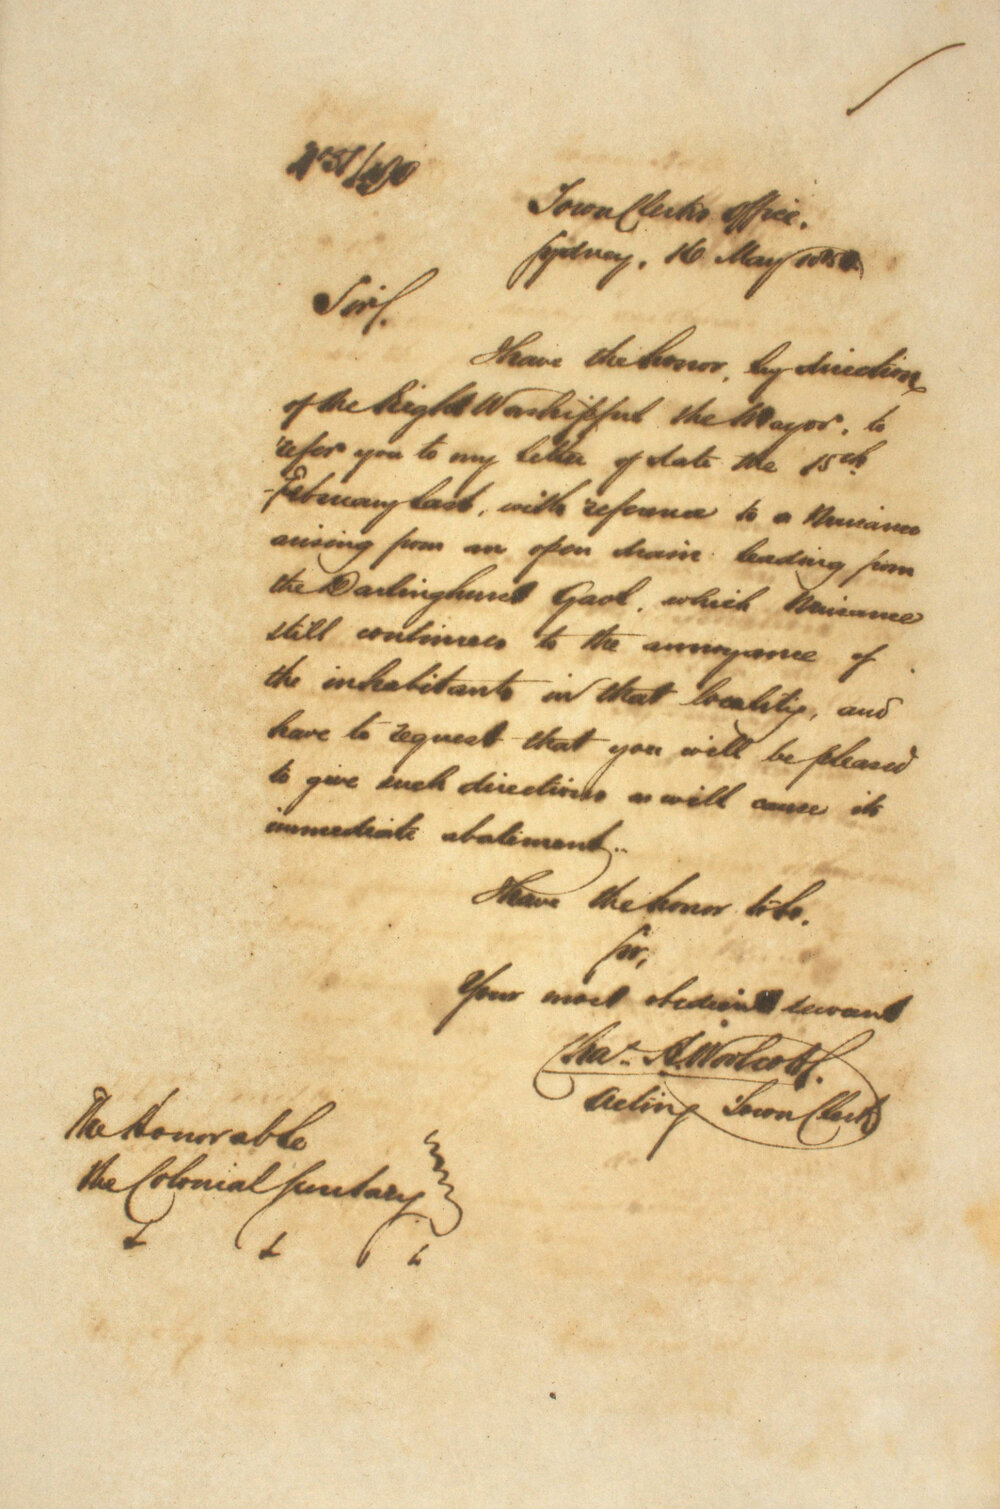 Town Clerk's Office,
Sydney, 16 May
Sir,
I have the honor, by direction
of the Right Worshipful the Mayor, to
refer you to my letter of date the 15th
February last, with reference to a Nuisance
arising from an open drain leading from
the Darlinghurst Gaol, which Nuisance
still continues to the annoyance of
the inhabitants in that locality, and
have to request that you will be pleased
to give such directions as will cause its
immediate abatement.
I have the honor to be,
Sir,
Your most obedient servant
Chas. H. Woolcott.
Acting Town Clerk
The Honorable
the Colonial Secretary